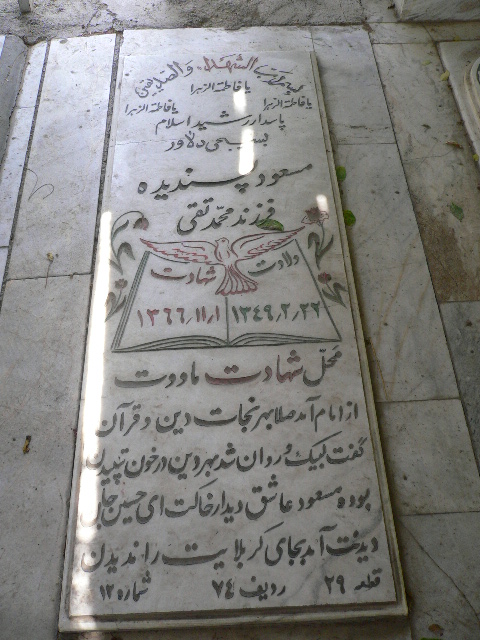 بسم رب الشهداء والصدیقین
یا فاطمة الزهرا
یا فاطمة الزهرا یا فاطمة الزهرا
پاسدار رشید اسلام
بسیجی دلاور
مسعود پسندیده
فرزند محمد تقی
ولادت شهادت
۱۳۴۹٫۲٫۲۲ ۱۳۶۶٫۱۱٫۱
محل شهادت ماووت
از امام آمد صلا بهر نجات دین و قرآن
گفت لبیک و روان شد بهر دین در خون تپیدن
بوده مسعود عاشق دیدار خاکت ای حسین جان
دیدنت آمد بجای کربلایت را ندیدن
قطعه ۲۹ ردیف ۷۴ شماره ۱۲